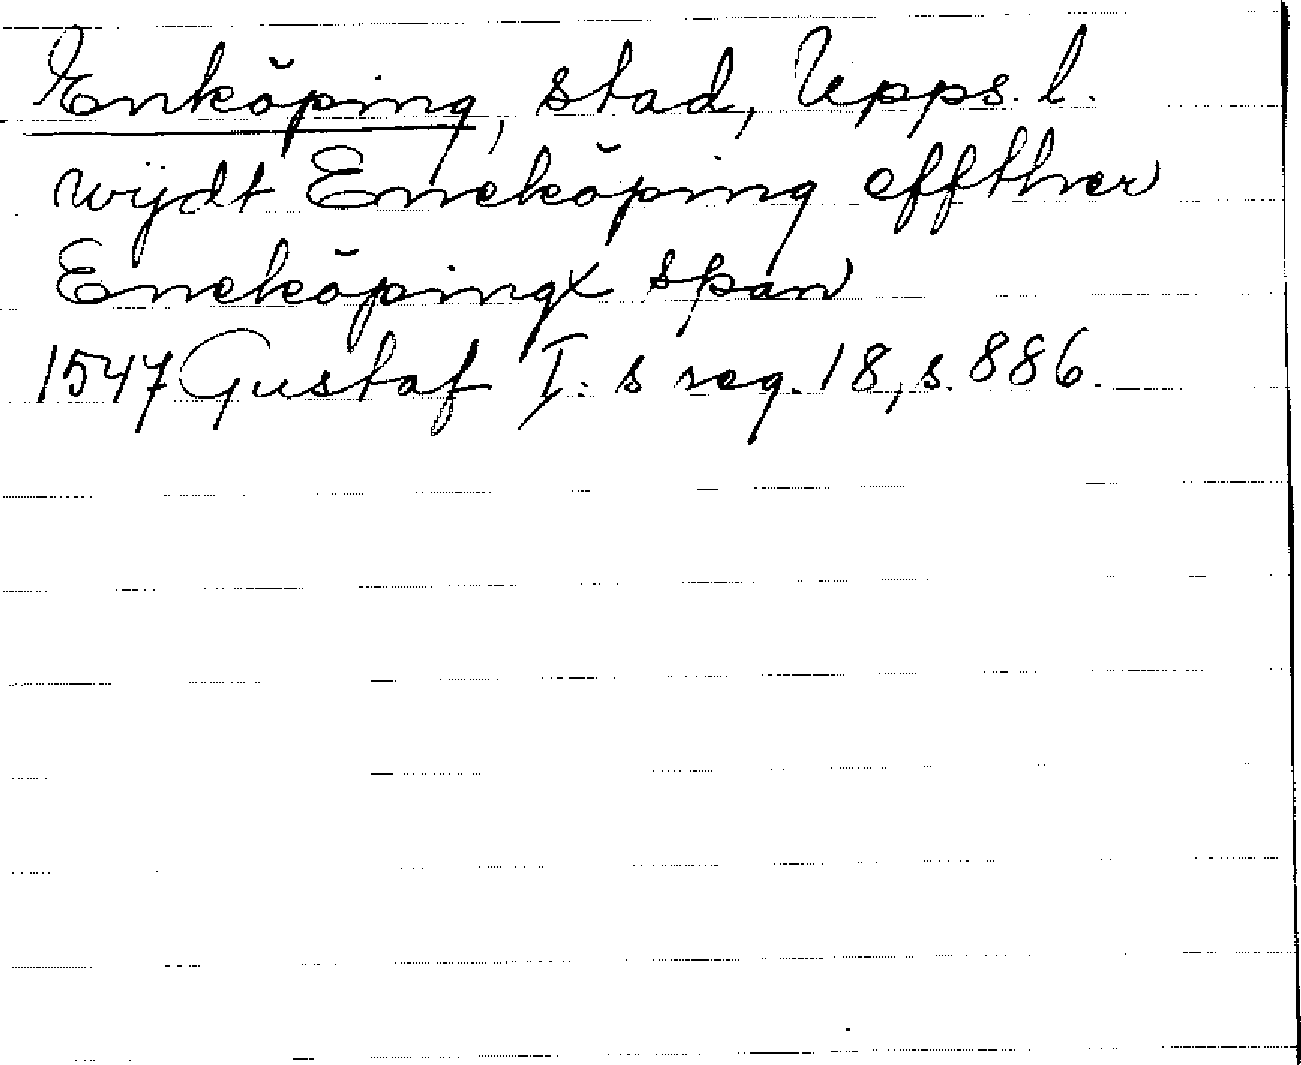 Enköping, stad, Upps. l.
wijdt Eneköping effther
Eneköpingx span
1547 Gustaf I:s reg. 18, s. 886.